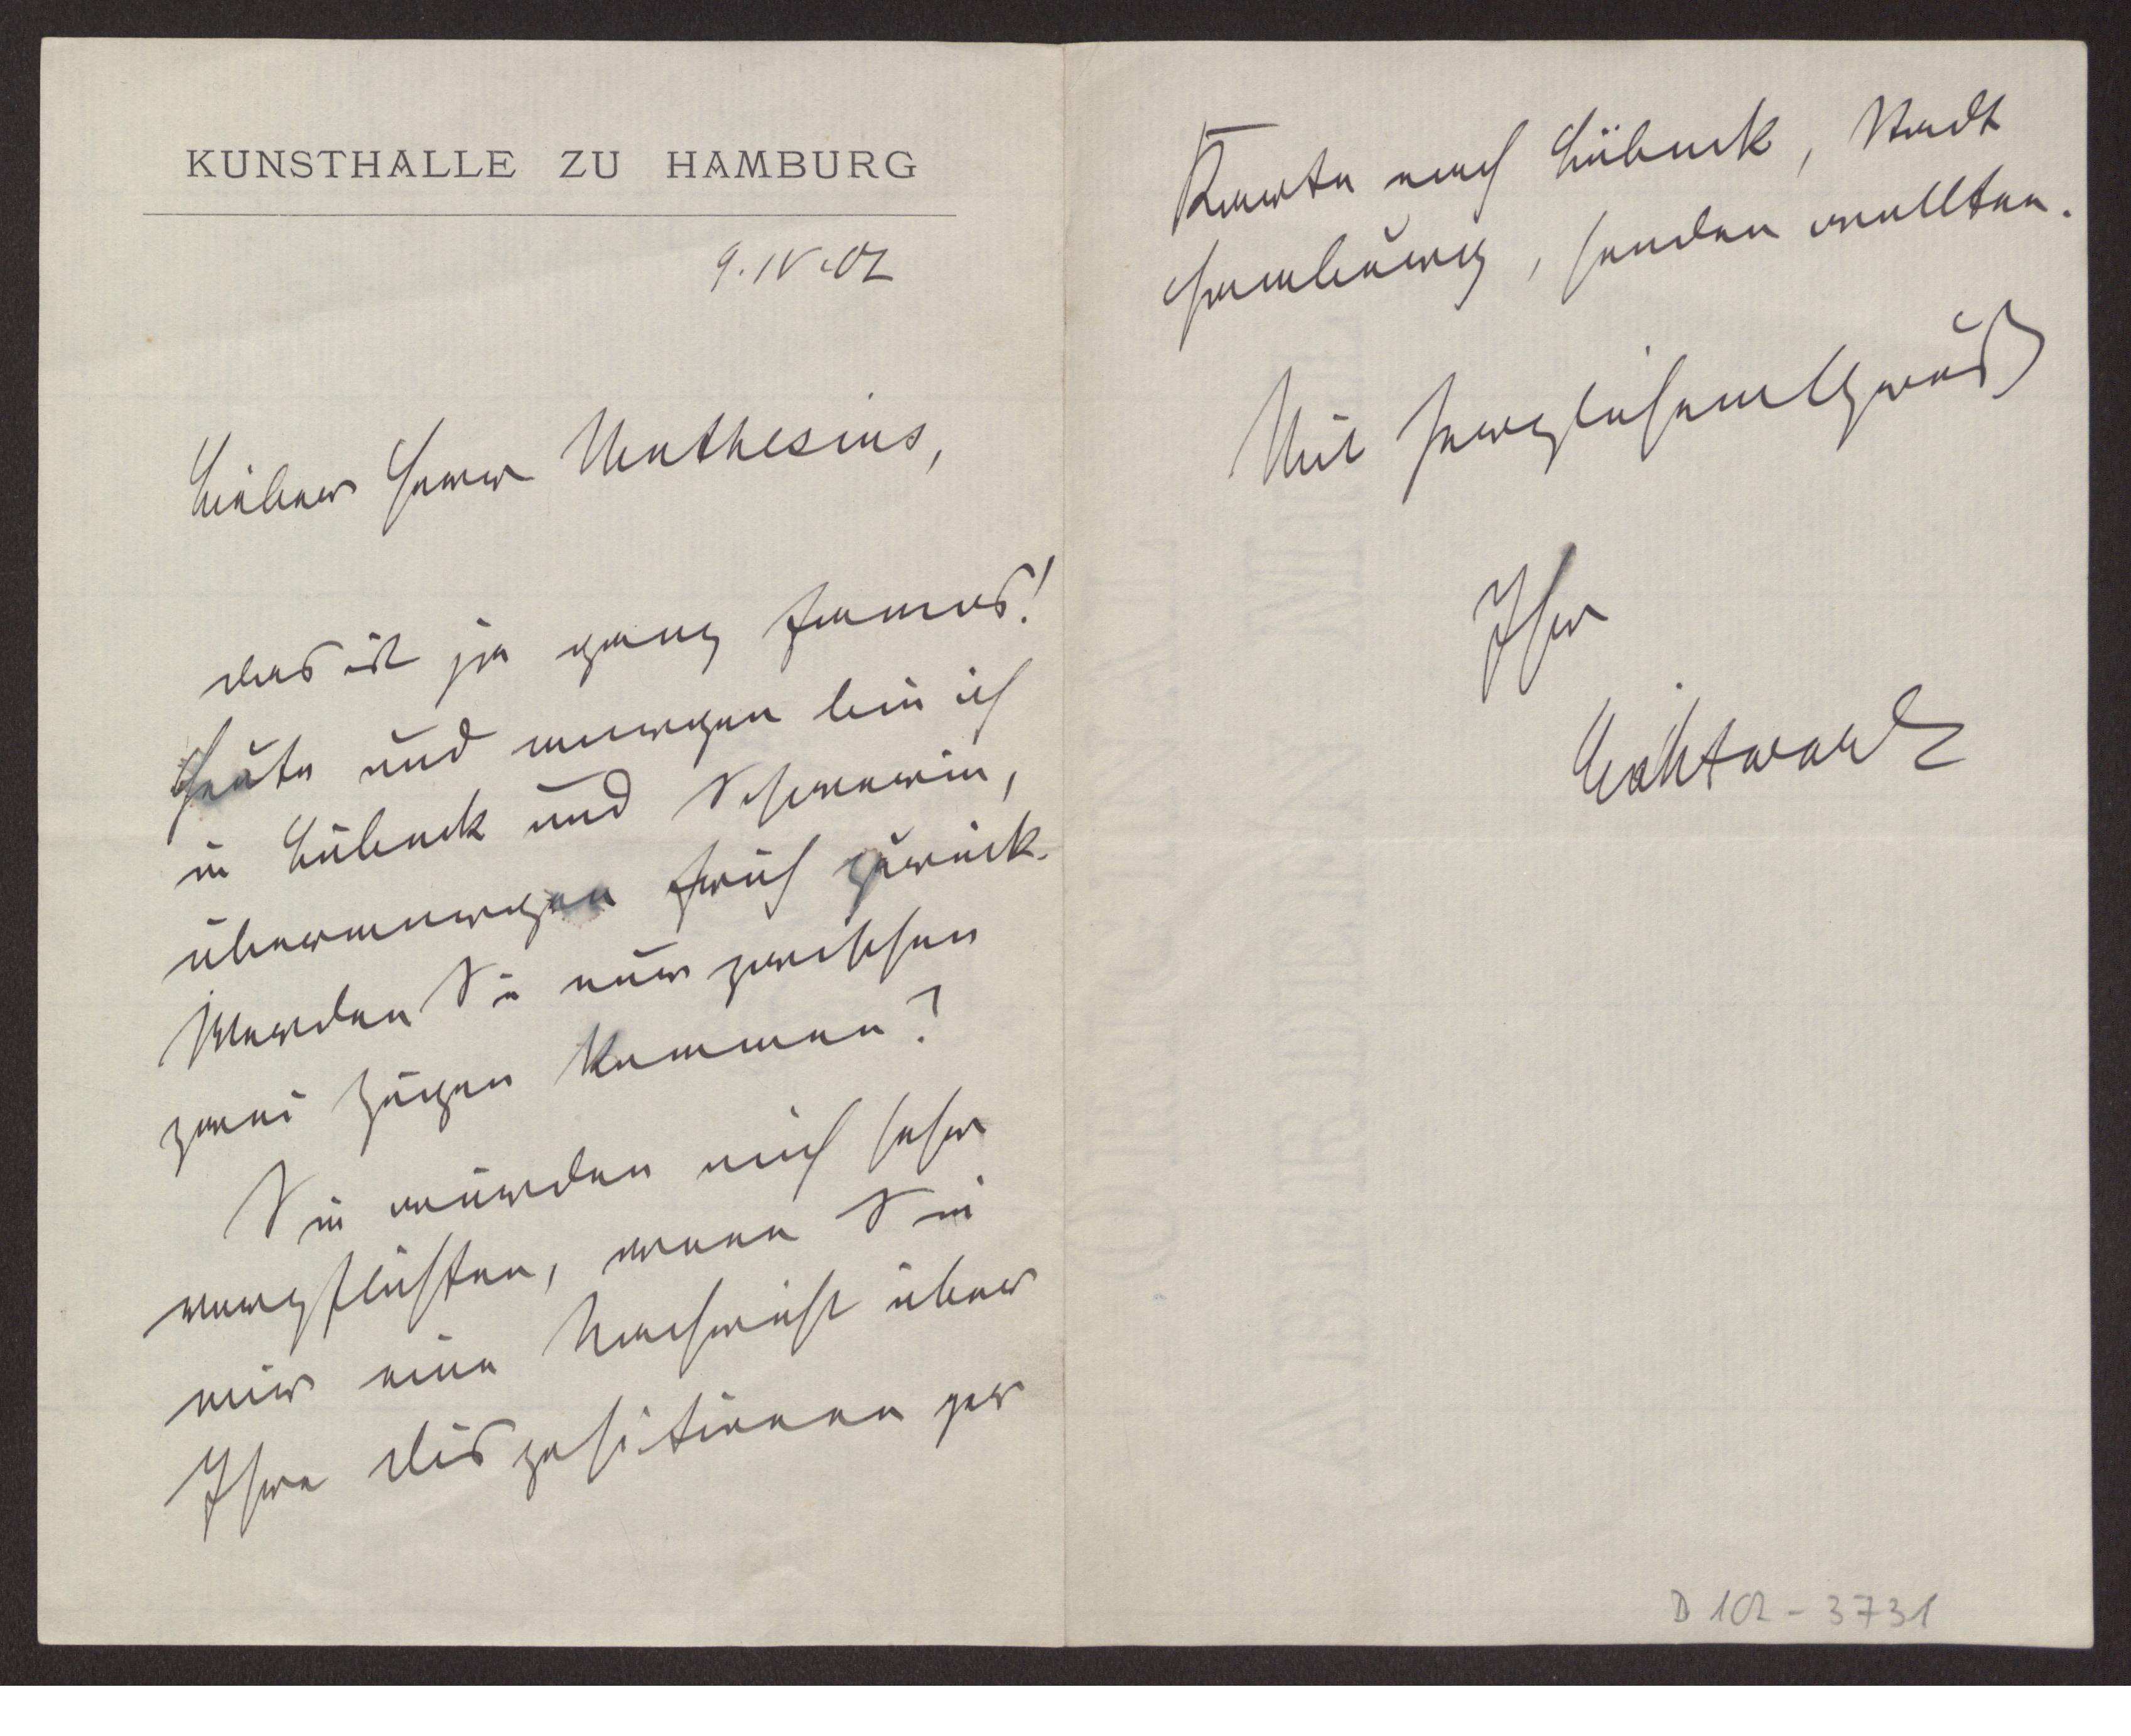 KUNSTHALLE ZU HAMBURG
9.IV.02
Lieber Herr Muthesius,
das ist ja ganz famos!
Heute und morgen bin ich
in Lübeck und Schwerin,
übermorgen früh zurück.
Werden Sie nur zwischen
zwei Zügen kommen?
Sie würden mich sehr
verpflichten, wenn Sie
mir eine Nachricht über
Ihre Dispositionen per
Karte nach Lübeck, Stadt
Hamburg, senden wollten.
Mit herzlichem Gruß
Ihr
Lichtwark
D 102-3731